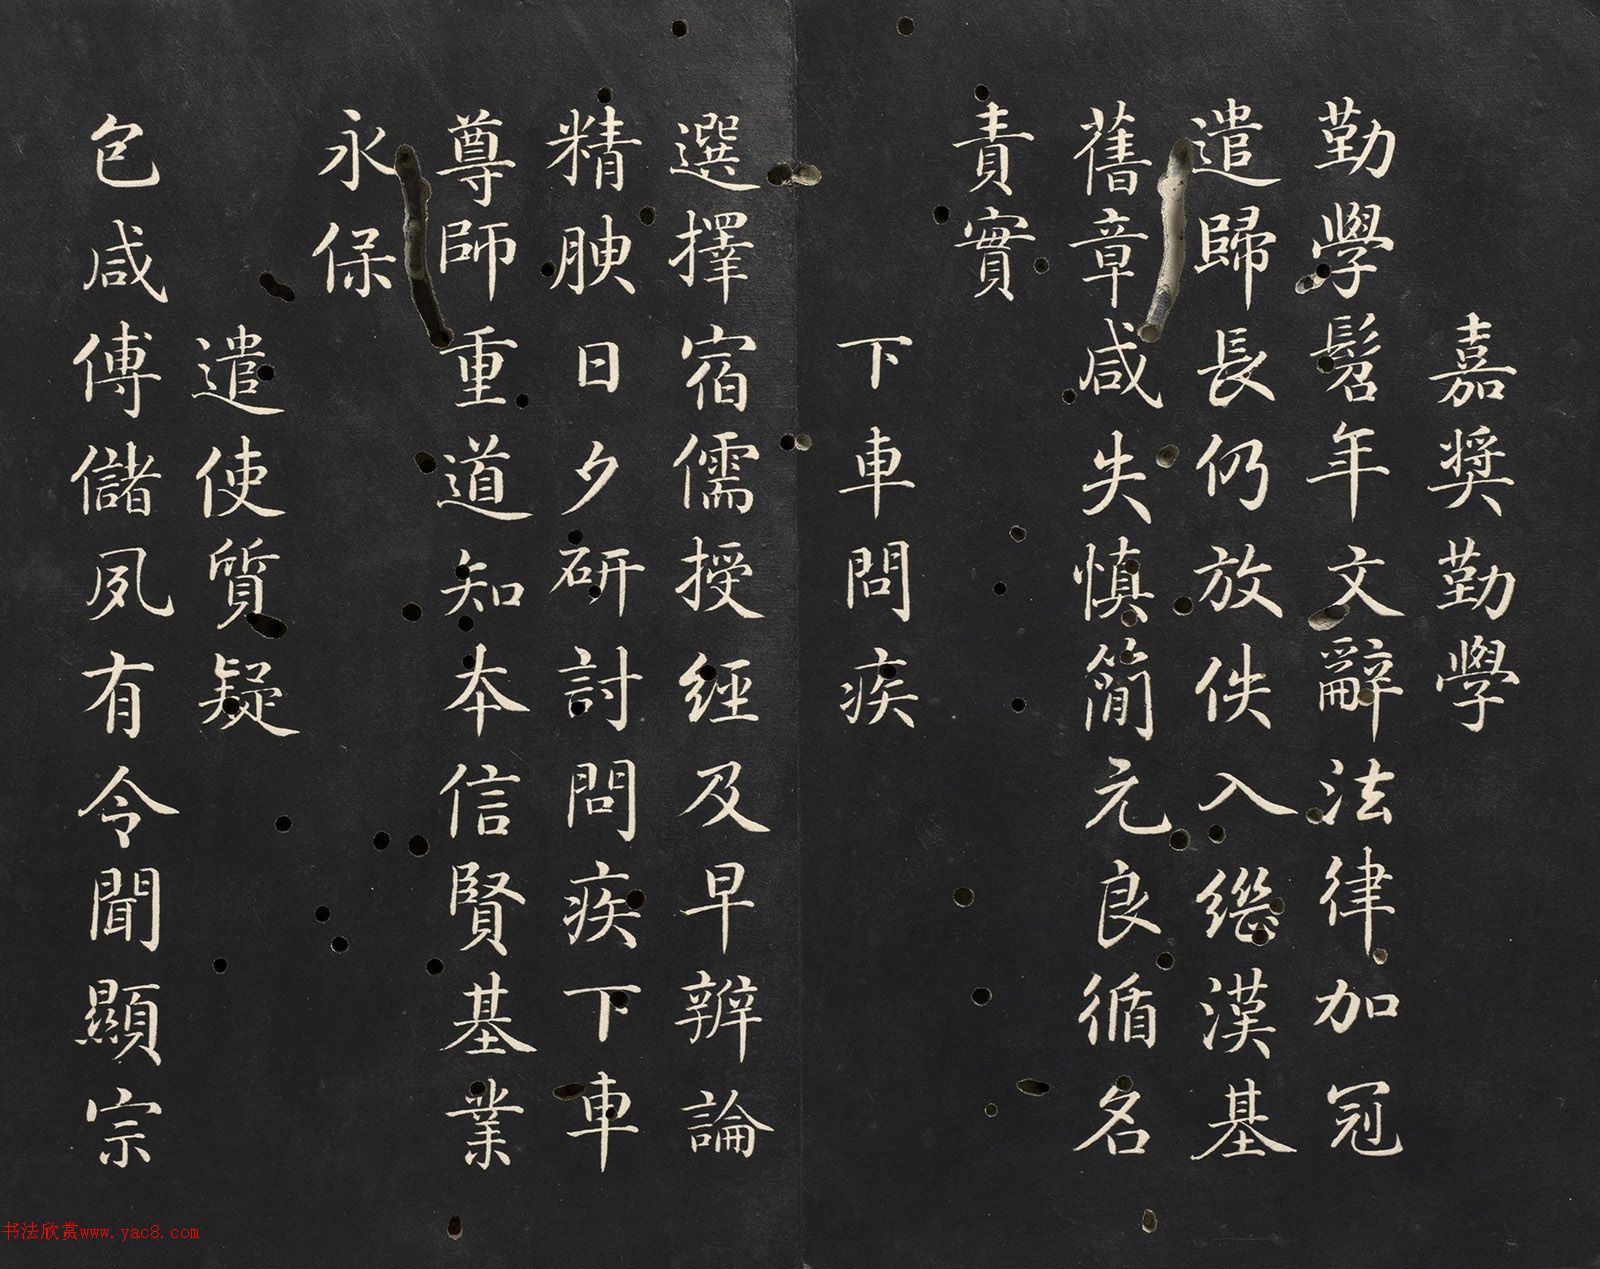 嘉奖勤學
勤學髫年文辭法律加冠
遣歸長仍放佚入繼漢基
舊章咸失慎簡元良循名
責實
下車問疾
選擇宿儒授經及早辨論
精腴日夕研討問疾下車
尊師重道知本信賢基業
永保
遣使質疑
包咸傅儲夙有令聞顯宗
书法欣赏www.yac8.com